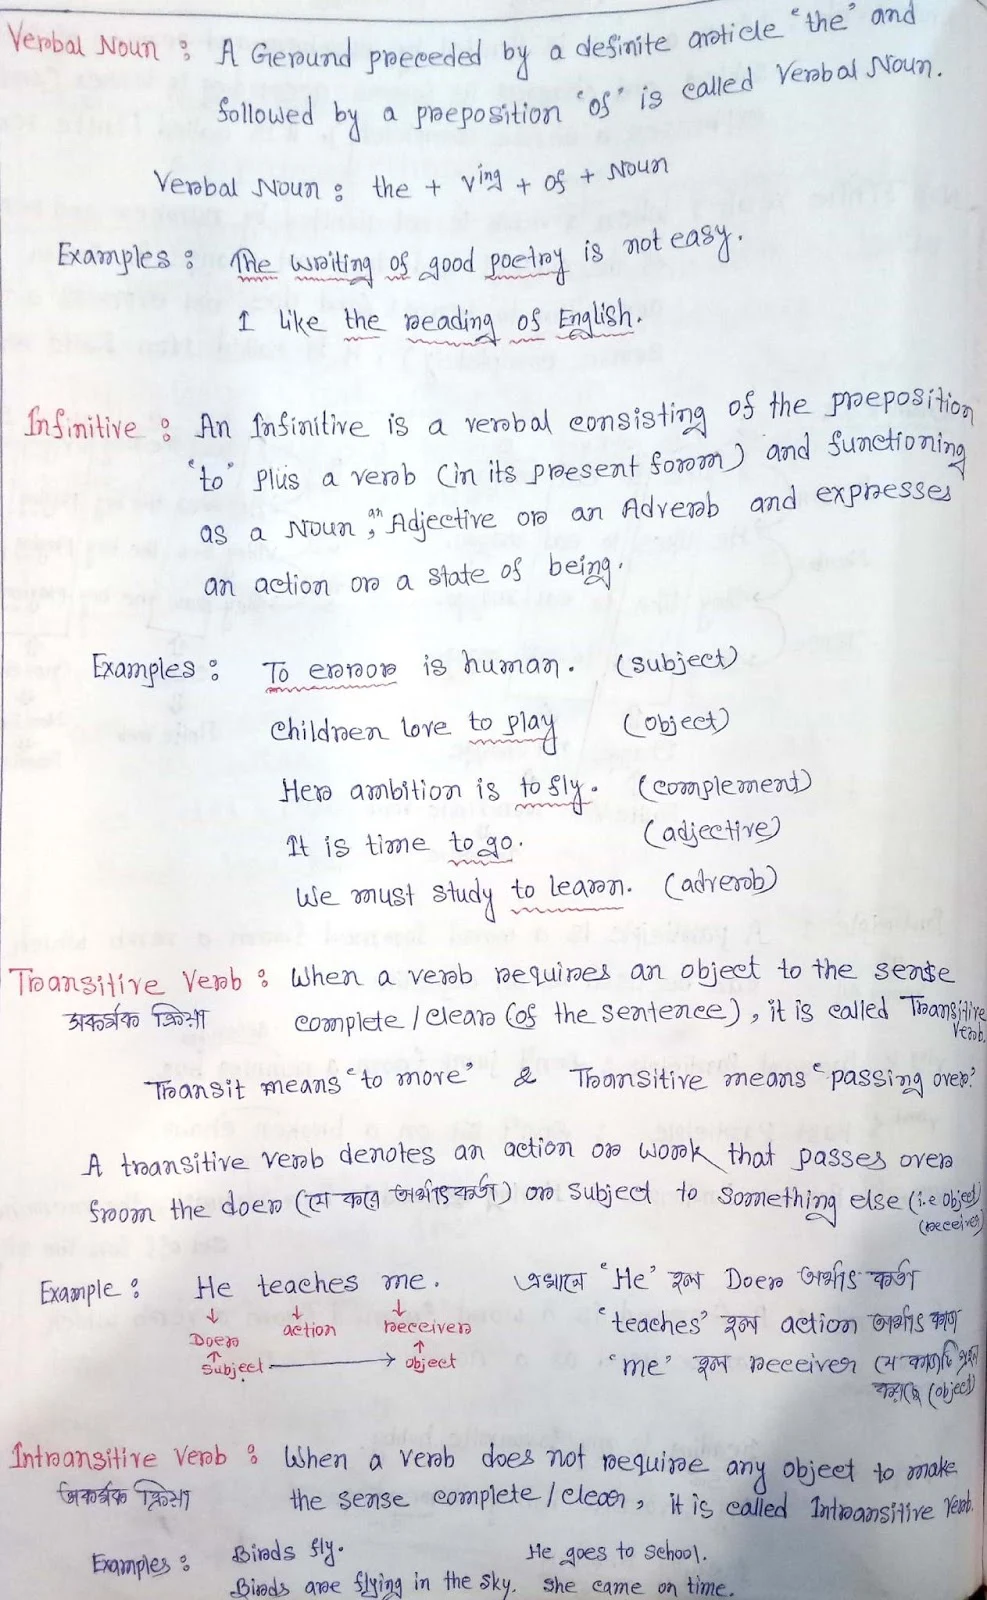 Verbal Noun : A Gerund preceded by a definite article "the" and
followed by a preposition "of" is called Verbal Noun.
Verbal Noun : the + Ving + of + Noun
Examples : The writing of good poetry is not easy.
I like the reading of English.
Infinitive : An Infinitive is a verbal consisting of the preposition
"to" plus a verb (in its present form) and functioning
as a Noun, an Adjective or an Adverb and expresses
an action or a state of being.
Examples : To error is human. (subject)
Children love to play (object)
Her ambition is to fly. (complement)
It is time to go. (adjective)
We must study to learn. (adverb)
Transitive Verb : When a verb requires an object to the sense
অকর্মক ক্রিয়া complete / clear (of the sentence), it is called Transitive
Verb.
Transit means "to move" & Transitive means "passing over".
A transitive verb denotes an action or work that passes over
from the doer (যে করে অর্থাৎ কর্তা) or subject to something else (i.e object)
(receiver)
Example : He teaches me. এখানে 'He' হল Doer অর্থাৎ কর্তা
Doer action receiver 'teaches' হল action অর্থাৎ কাজ
Subject → object 'me' হল receiver যে কাজটি গ্রহন
করছে (object)
Intransitive Verb : When a verb does not require any object to make
অকর্মক ক্রিয়া the sense complete / clear, it is called Intransitive Verb.
Examples : Birds fly. He goes to school.
Birds are flying in the sky. She came on time.